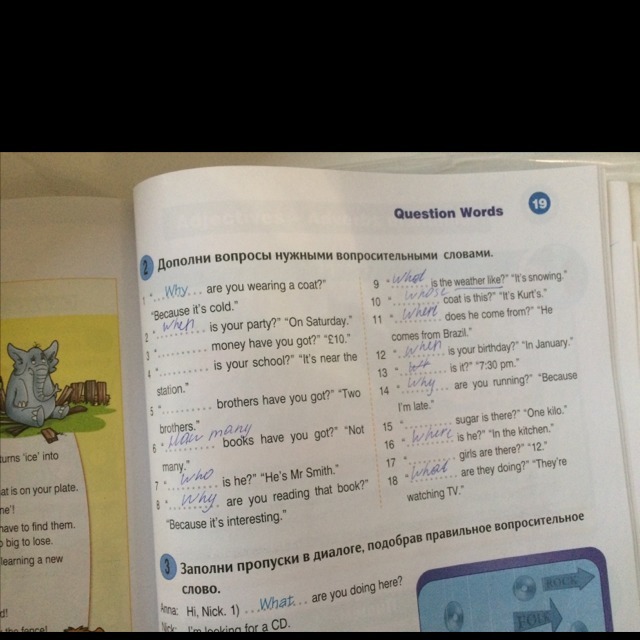 Question Words 19
2 Дополни вопросы нужными вопросительными словами.
1 "...Why... are you wearing a coat?"
"Because it's cold."
2 "When is your party?" "On Saturday."
3 "......... money have you got?" "£10."
4 "......... is your school?" "It's near the
station."
5 "......... brothers have you got?" "Two
brothers."
6 "How many books have you got?" "Not
many."
7 "Who is he?" "He's Mr Smith."
8 "Why are you reading that book?"
"Because it's interesting."
9 "What is the weather like?" "It's snowing."
10 "Whose coat is this?" "It's Kurt's."
11 "Where does he come from?" "He
comes from Brazil."
12 "When is your birthday?" "In January."
13 " is it?" "7:30 pm."
14 "Why are you running?" "Because
I'm late."
15 "......... sugar is there?" "One kilo."
16 "Where is he?" "In the kitchen."
17 "......... girls are there?" "12."
18 "What are they doing?" "They're
watching TV."
3 Заполни пропуски в диалоге, подобрав правильное вопросительное
слово.
Anna: Hi, Nick. 1) ...What... are you doing here?
Nick: I'm looking for a CD.
ROCK
FOLK
turns 'ice' into
at is on your plate.
ne'!
have to find them.
o big to lose.
learning a new
d!
the fence!